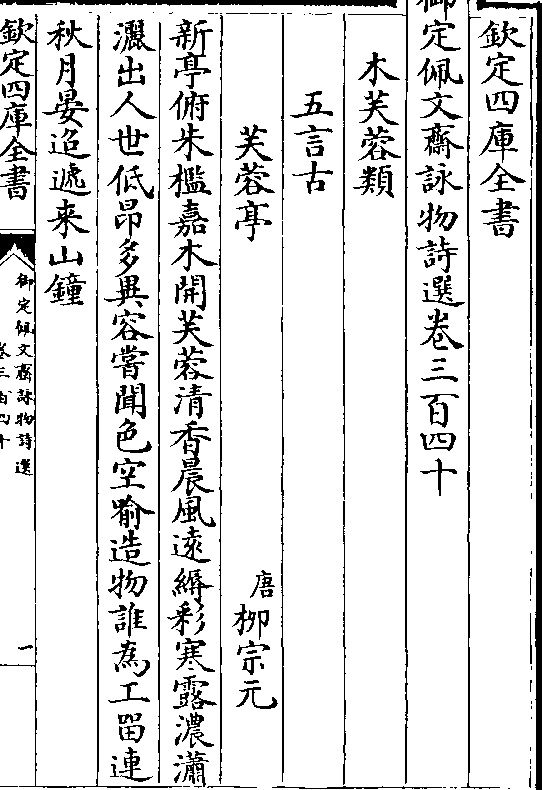 欽定四庫全書
御定佩文齋詠物詩選卷三百四十
木芙蓉類
五言古
芙蓉亭
唐
柳宗元
新亭俯朱檻嘉木開芙蓉清香晨風遠縟彩寒露濃瀟
灑出人世低昂多異容嘗聞色空喻造物誰為工留連
秋月晏迢遞来山鐘
欽定四庫全書
御定佩文齋詠物詩選
卷三百四十
一